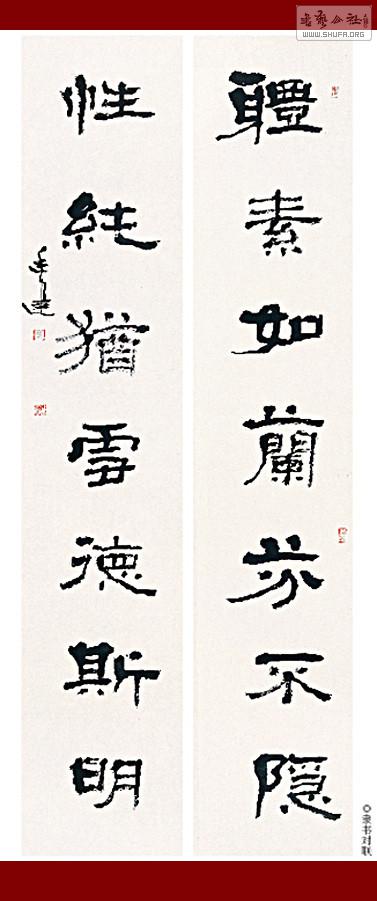 書藝公社
WWW.SHUFA.ORG
軆素如蘭芬不隱
性純猶雪德斯明
◎隶书对联